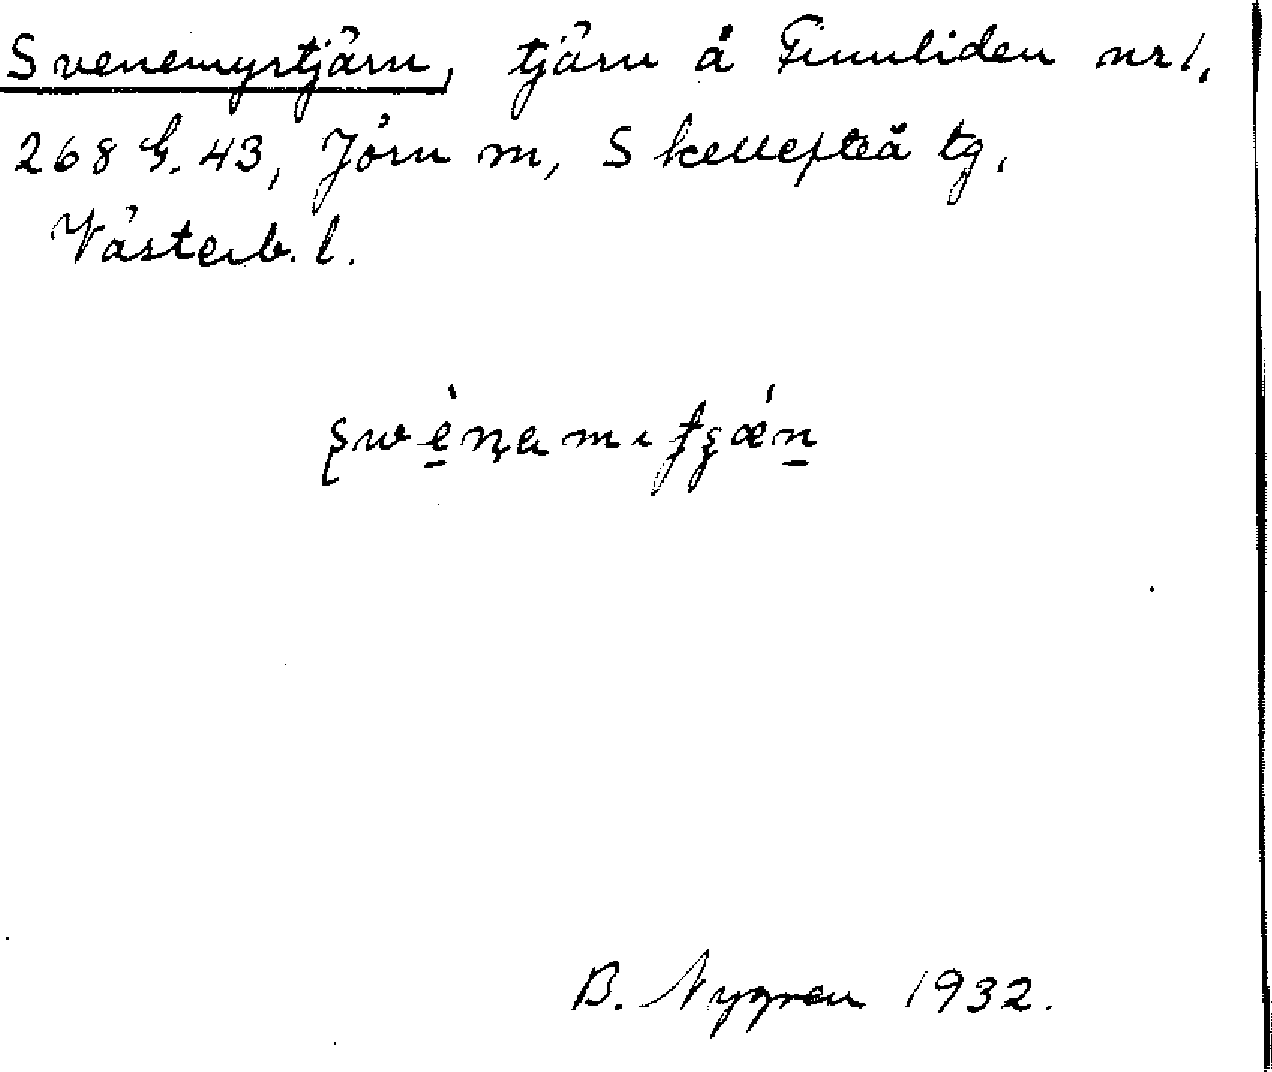 Svenemyrtjärn, tjärn å Finnliden nr 1,
268 G. 43, Jörn m, Skellefteå tg,
Västerb. l.
B. Nygren 1932.